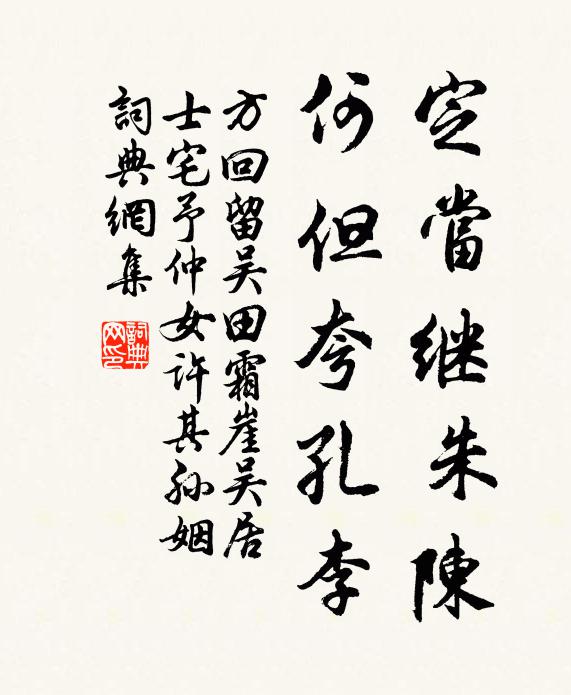 定當继朱陳
何但夸孔李
方回留吴田霜崖吴居
士宅予仲女许其孙姻
詞典網集
詞典
网印